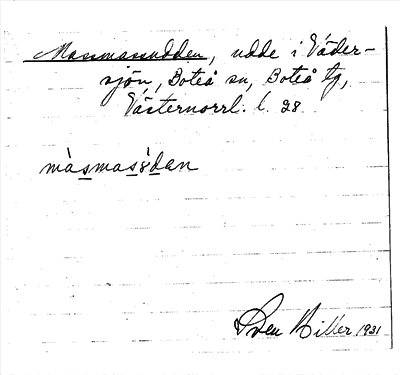 Masmassudden, udde i Väder-
sjön, Boteå sn, Boteå tg,
Västernorrl. l. 28
màsmasşdan
Sven Hiller 1931